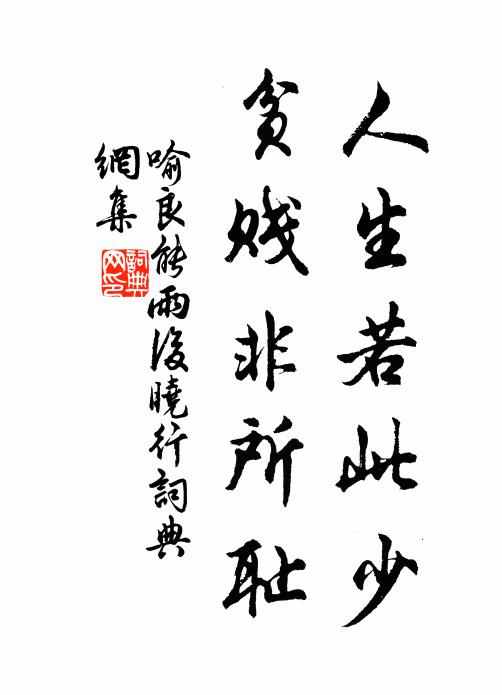 人生若此少
貧賤非所耻
喻良能雨後曉行詞典
網集
詞典
网印